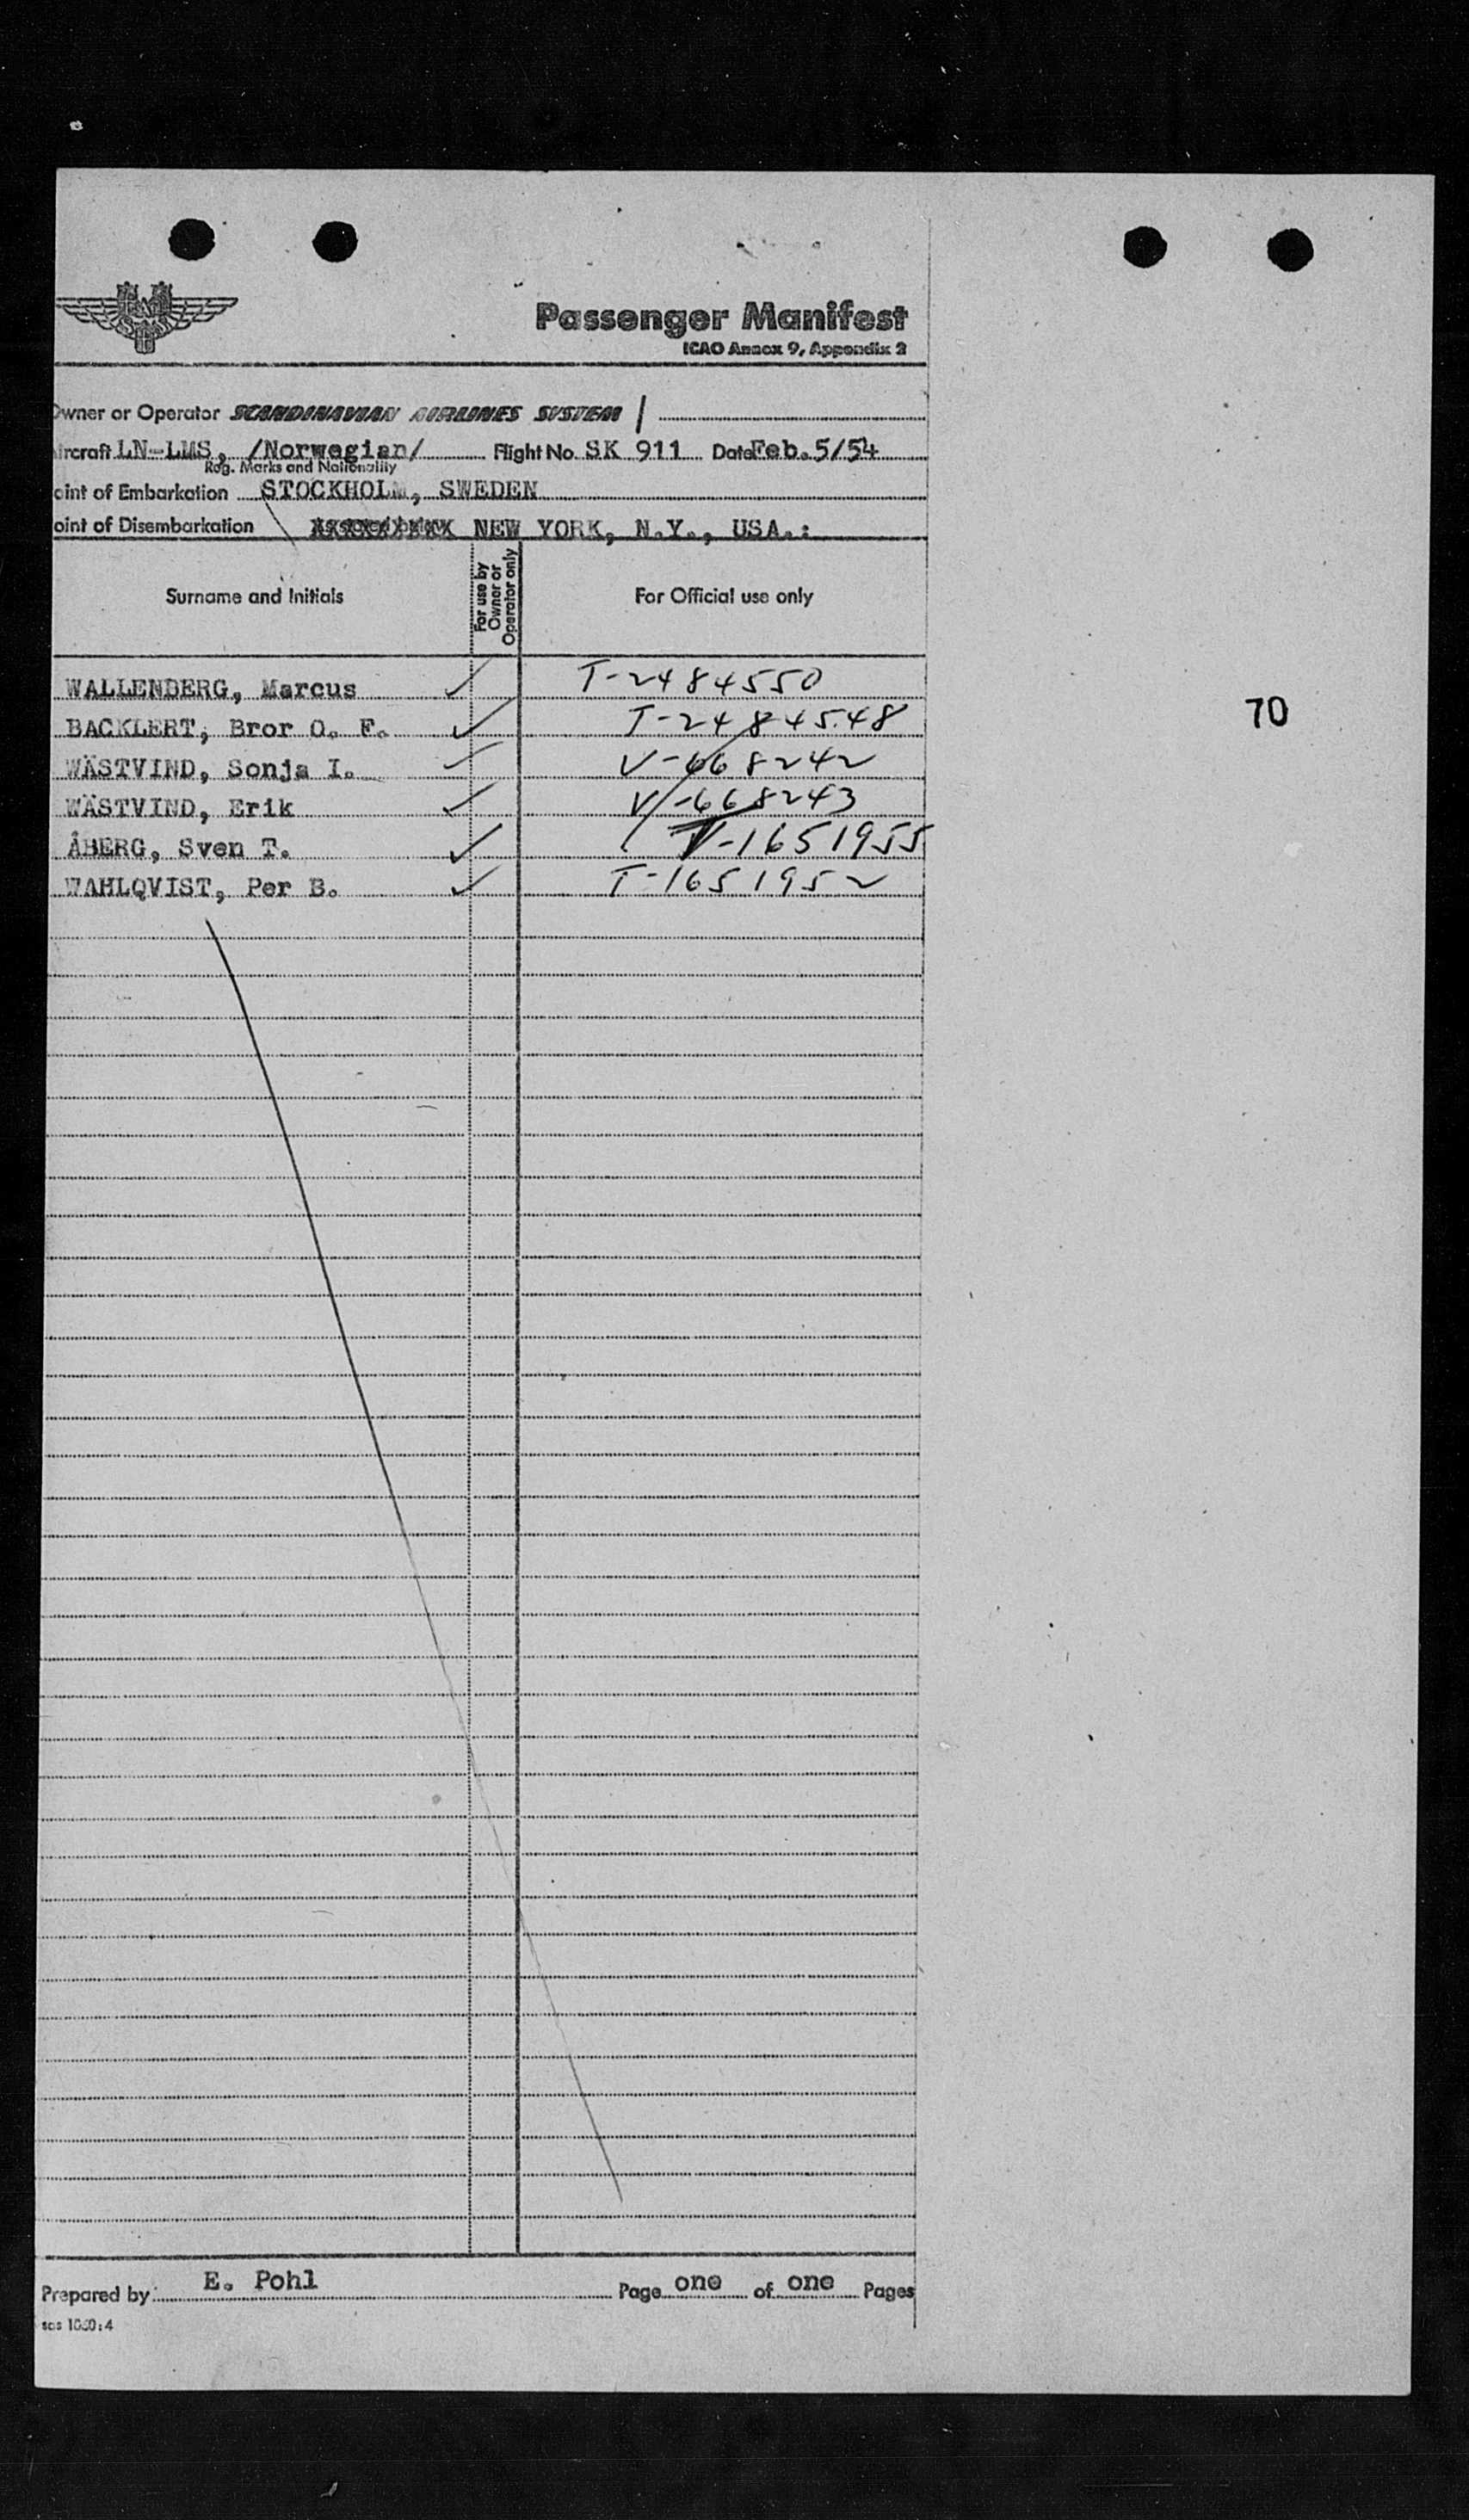 Passenger Manifest
ICAO Annex 9, Appendix 2
Owner or Operator SCANDINAVIAN AIRLINES SYSTEM
ircraft LN-LMS, /Norwegian/ Flight No. SK 911 Date Feb. 5/54
Reg. Marks and Nationality
oint of Embarkation STOCKHOLM, SWEDEN
oint of Disembarkation NEW YORK, N.Y., USA.:
Surname and Initials For use by Owner or Operator only For Official use only
WALLENBERG, Marcus ✓ T-2484550
BACKLERT, Bror O. F. ✓ T-2484548
70
WÄSTVIND, Sonja I. ✓ V-668242
WÄSTVIND, Erik ✓ V-668243
ÅBERG, Sven T. ✓ V-1651955
WAHLQVIST, Per B. ✓ T-1651952
Prepared by: E. Pohl Page one of one Pages
sas 1060:4